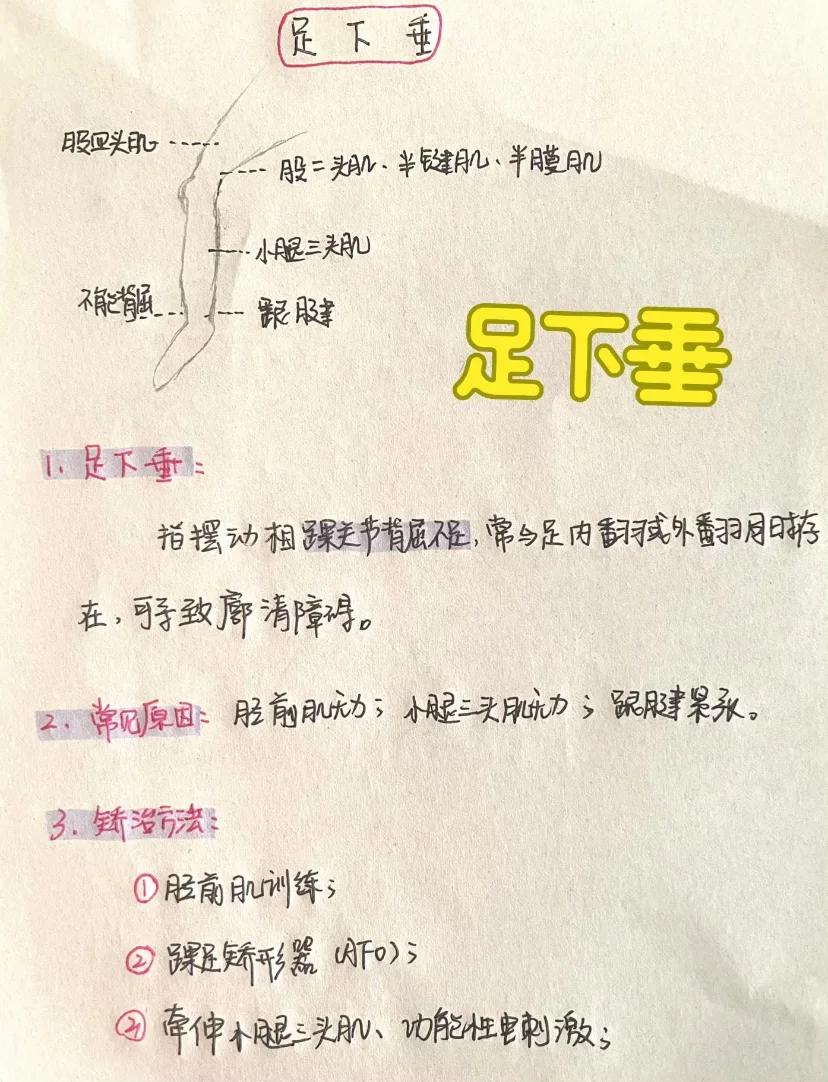 足下垂
股四头肌
股二头肌、半键肌、半膜肌
小腿三头肌
不能背屈
跟腱
足下垂
1、足下垂：
指摆动相踝关节背屈不足，常与足内翻或外翻同时存
在，可导致廓清障碍。
2、常见原因：胫前肌无力；小腿三头肌无力；跟腱紧张。
3、矫治方法：
①胫前肌训练；
②踝足矫形器（AFO）；
③牵伸小腿三头肌、功能性电刺激；